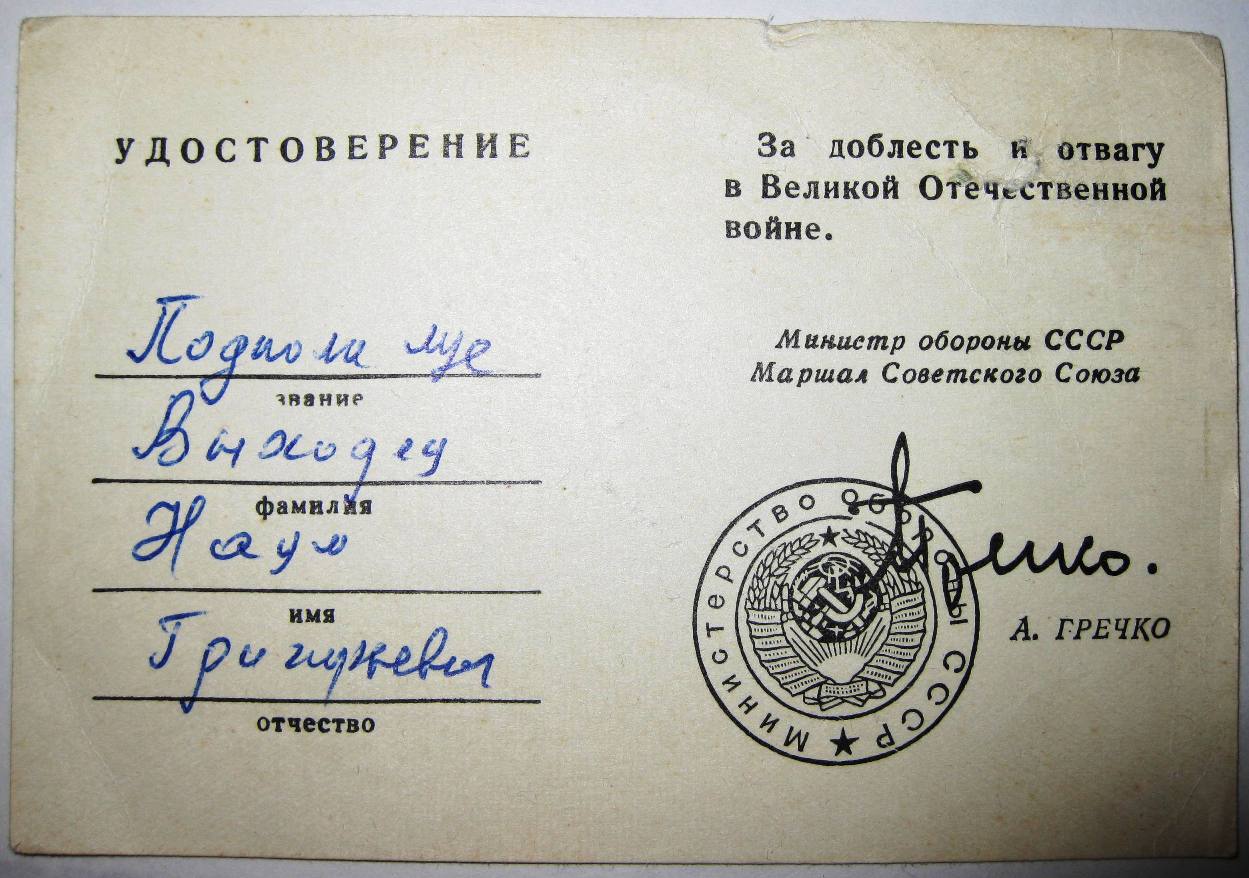 УДОСТОВЕРЕНИЕ
звание
Выходец
фамилия
Наум
имя
отчество
За доблесть и отвагу
в Великой Отечественной
войне.
Министр обороны СССР
Маршал Советского Союза
МИНИСТЕРСТВО ОБОРОНЫ СССР
А. ГРЕЧКО